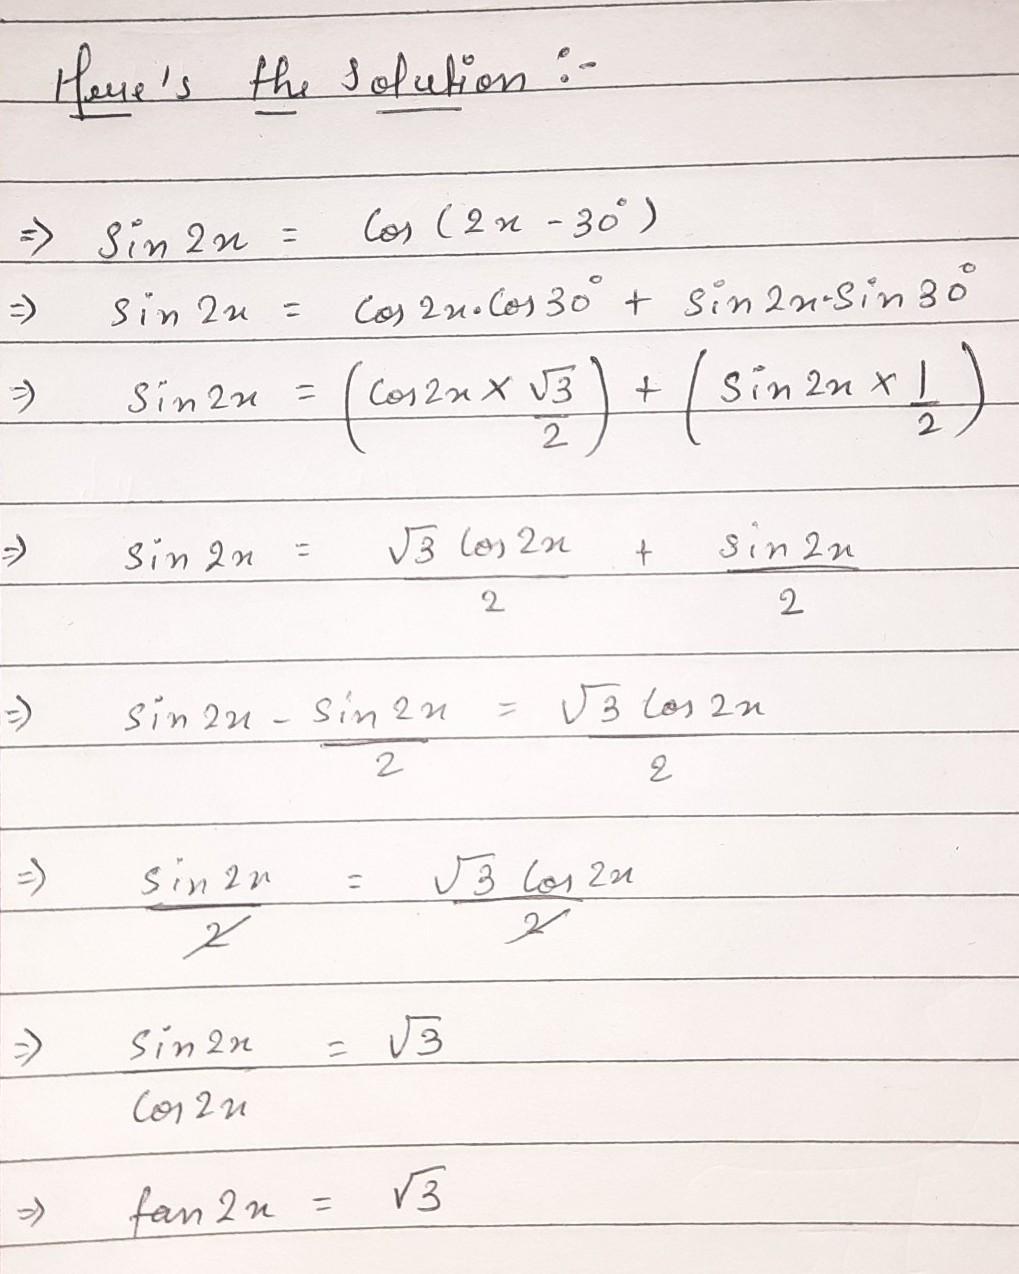 Here's the solution :-
⇒ Sin 2x = Cos (2x - 30°)
⇒ Sin 2x = Cos 2x.Cos 30° + Sin 2x.Sin 30°
⇒ Sin 2x = (Cos 2x × √3/2) + (Sin 2x × 1/2)
⇒ Sin 2x = √3 Cos 2x/2 + Sin 2x/2
⇒ Sin 2x - Sin 2x/2 = √3 Cos 2x/2
⇒ Sin 2x/2 = √3 Cos 2x/2
⇒ Sin 2x/Cos 2x = √3
⇒ tan 2x = √3